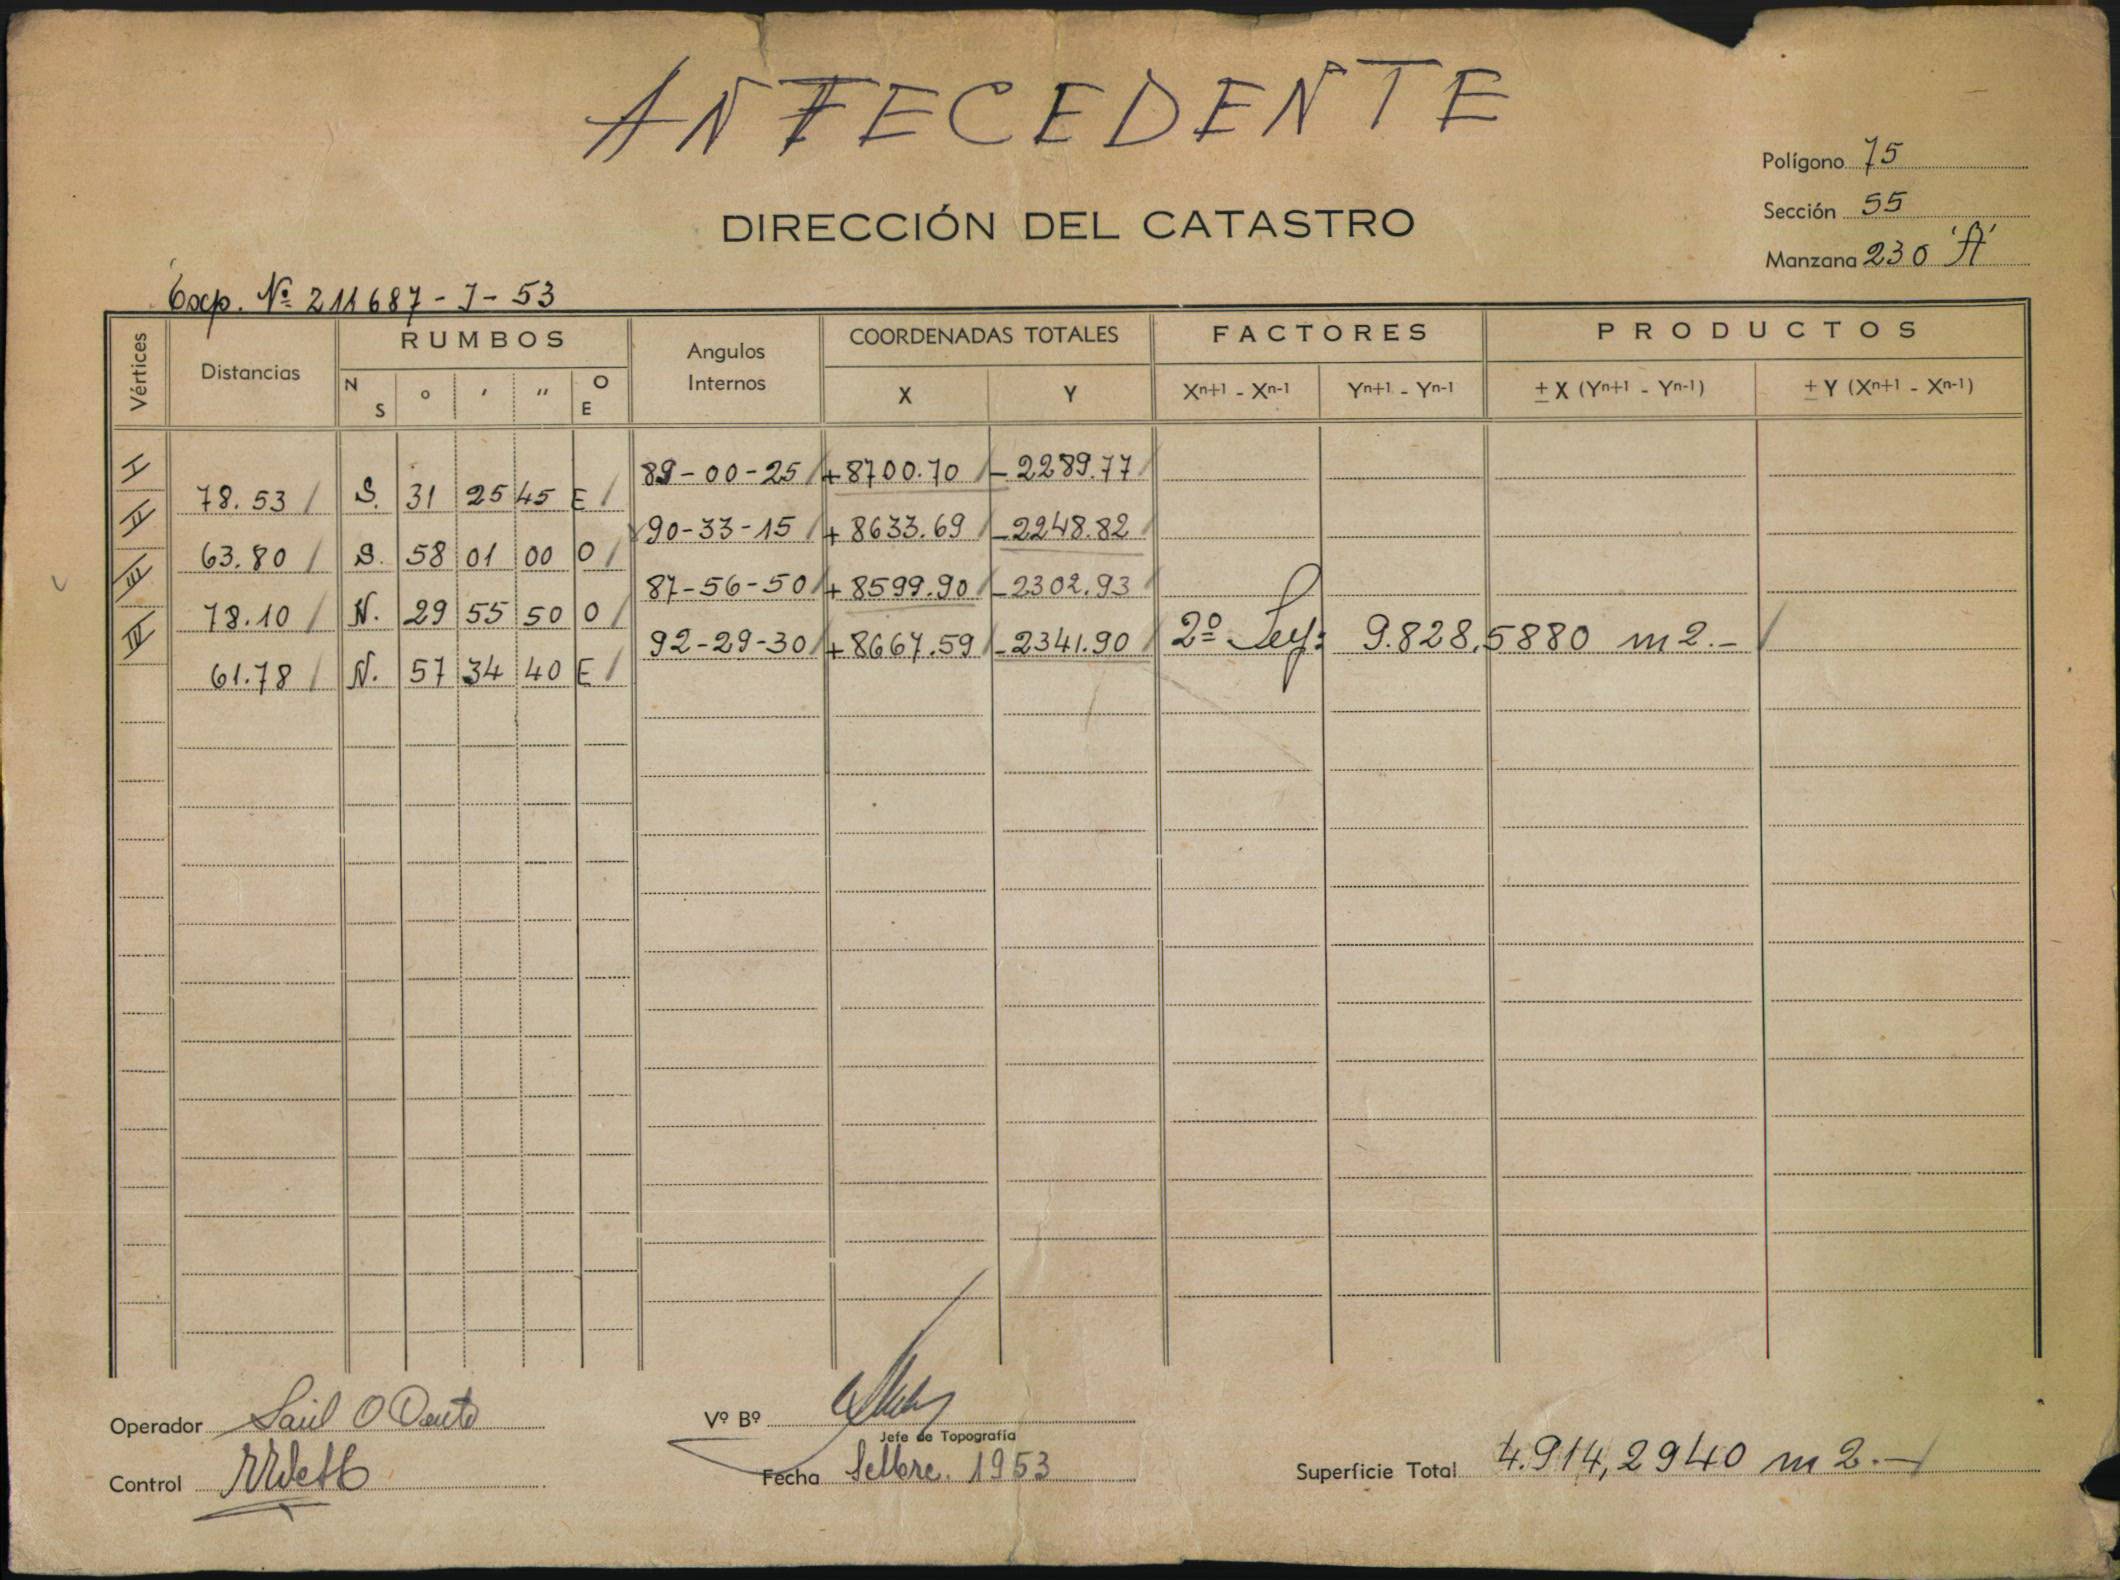 ANTECEDENTE
Polígono 75
Sección 55
Manzana 230 'A'
DIRECCIÓN DEL CATASTRO
Exp. Nº 211687-J-53
Vértices Distancias RUMBOS Angulos Internos COORDENADAS TOTALES FACTORES PRODUCTOS
N S ° ' " O E X Y Xn+1 - Xn-1 Yn+1 - Yn-1 ± X (Yn+1 - Yn-1) ± Y (Xn+1 - Xn-1)
I 89-00-25 +8700.70 -2289.77
78.53 S. 31 25 45 E
II 90-33-15 +8633.69 -2248.82
63.80 S. 58 01 00 O
III 87-56-50 +8599.90 -2302.93
78.10 N. 29 55 50 O
IV 92-29-30 +8667.59 -2341.90 2º 9.828,5880 m2.-
61.78 N. 57 34 40 E
Operador Saúl O
Vº Bº
Jefe de Topografía
Control
Fecha Setbre. 1953
Superficie Total 4.914,2940 m2.-